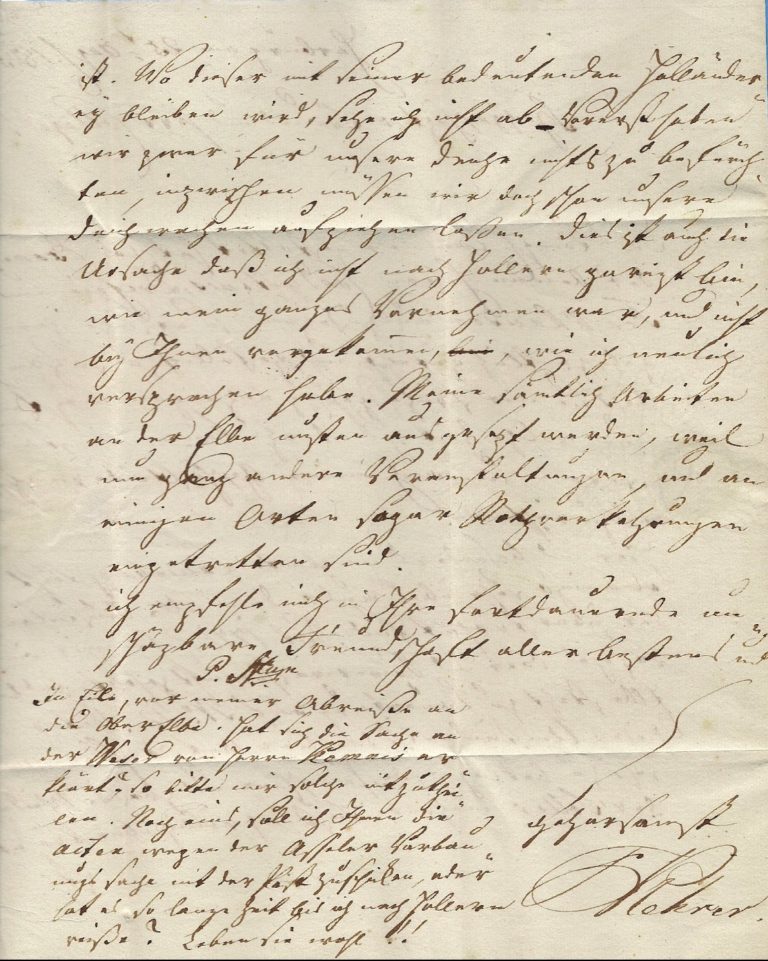 ist. Wo dieser mit seiner bedeutenden Holländer„
ey bleiben wird, sehe ich nicht ab – Vorerst haben
wir zwar für unsere Deiche nichts zu befürch„
ten, inzwischen müssen wir doch schon unsere
Deichwachen aufziehen laßen. Dies ist auch die
Ursache daß ich nicht nach Hollern gereist bin,
wie mein ganzes Vornehmen war, und nicht
bey Ihnen vorgekommen, wie ich neulich
versprochen habe. Meine sämtlich Arbeiten
an der Elbe musten ausgesezt werden, weil
nun ganz andere Veranstaltungen, und an
einigen Orten sogar Nothvorkehrungen
eingetretten sind.
ich empfehle mich in Ihre fortdauernde un„
schäzbare Freundschaft aller bestens und
P.
In Eile, vor meiner Abreise an
die OberElbe. hat sich die Sache an
der Weser von Herrn er„
klärt, so bitte mir solche mitzuthei„
len. Noch eins, soll ich Ihnen die
Acten wegen der Asseler Vorbau„
ungs sache mit der Post zuschiken, oder
hat es so lange Zeit bis ich nach Hollern
reiße? Leben sie wohl!!
gehorsamst